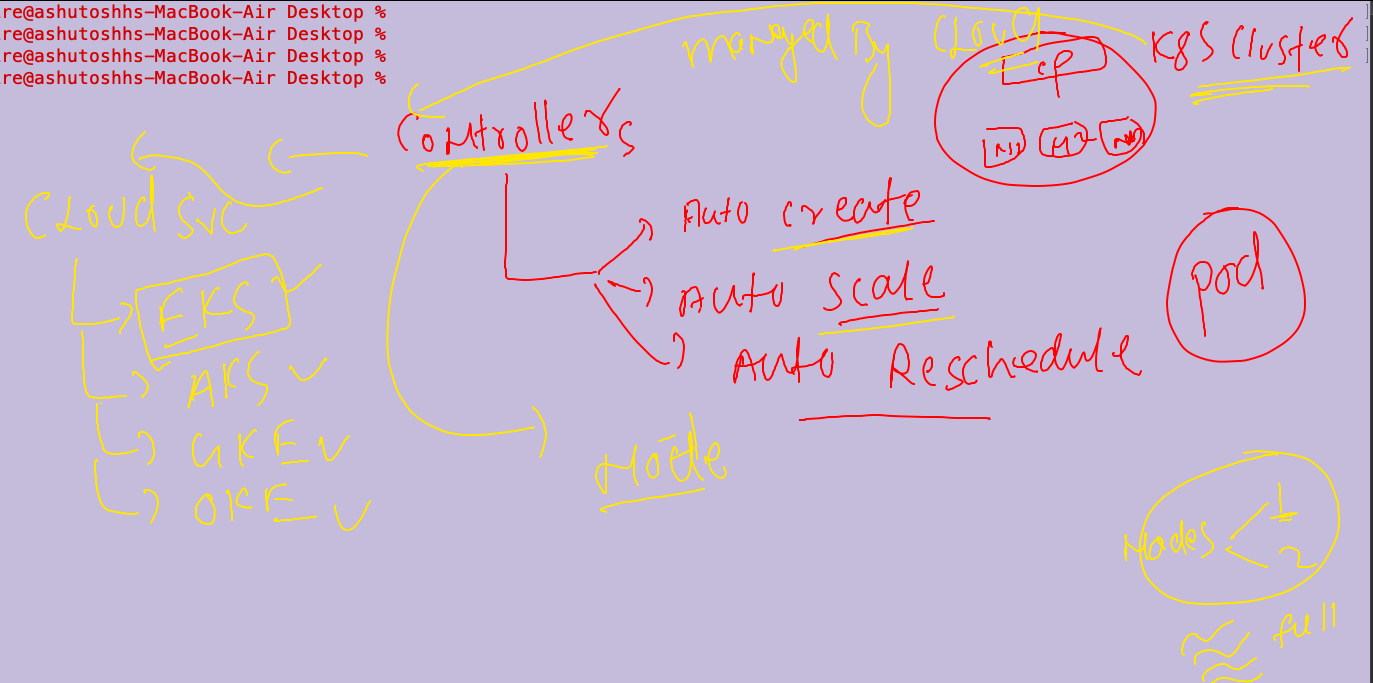 re@ashutoshhs-MacBook-Air Desktop %
re@ashutoshhs-MacBook-Air Desktop %
re@ashutoshhs-MacBook-Air Desktop %
re@ashutoshhs-MacBook-Air Desktop %
managed By Cloud
K8S Cluster
CP
N1
Controllers
Cloud SVC
Auto create
Auto Scale
Auto Reschedule
pod
EKS
AKS
GKE
OKE
Node
Nodes
1
2
full